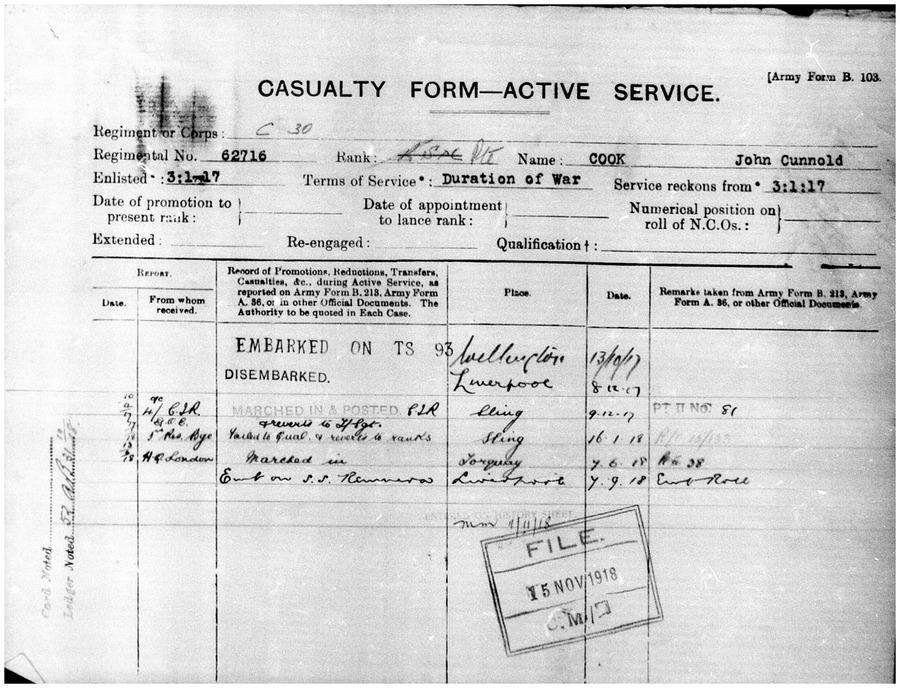 [Army Form B. 103.
CASUALTY FORM—ACTIVE SERVICE.
Regiment or Corps: C 30
Regimental No. 62716 Rank: Pte Name: COOK John Cunnold
Enlisted*: 3:1:17 Terms of Service*: Duration of War Service reckons from* 3:1:17
Date of promotion to } present rank: Date of appointment } to lance rank: Numerical position on } roll of N.C.Os.:
Extended: Re-engaged: Qualification†:
REPORT.
Date. From whom received.
Record of Promotions, Reductions, Transfers,
Casualties, &c., during Active Service, as
reported on Army Form B. 213, Army Form
A. 36, or in other Official Documents. The
Authority to be quoted in Each Case.
Place.
Date.
Remarks taken from Army Form B. 213, Army
Form A. 36, or other Official Documents.
EMBARKED ON TS 93 Wellington 13/10/17
DISEMBARKED. Liverpool 8.12.17
MARCHED IN & POSTED. Sling 9.12.17 PT II NO: 81
& reverts to
5th Res. failed to Qual. & reverts to ranks Sling 16.1.18
HQ London Marched in Torquay 7.6.18 38
Emb on S.S. Liverpool 7.9.18 Emb Roll
ENTERED ON HISTORY SHEET
FILE.
15 NOV 1918
Card Noted
Ledger Noted